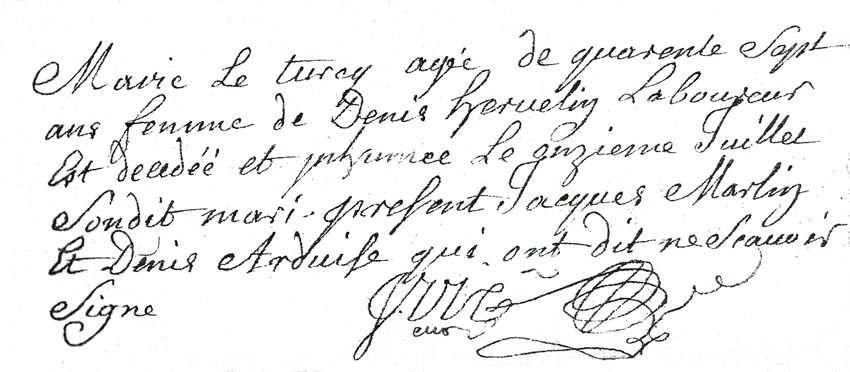 Marie Le turcq agée de quarente Sept
ans femme de Denis hervelin Laboureur
Est decedée et inhumee Le onzieme Juillet
Sondit mari present, Jacques Martin
Et Denis Arduise qui ont dit ne Scauoir
Signe